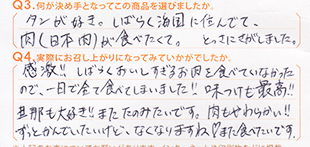 Q3.何が決め手となってこの商品を選びましたか。
タンが好き。しばらく海国に住んでて、
肉(日本肉)が食べたくて。 とっさにさがしました。
Q4.実際にお召し上がりになってみていかがでしたか。
感激!! しばらくおいしすぎるお肉を食べていなかった
ので、一日で全て食べてしまいました!! 味つけも最高!!
旦那も大好き!! またたのみたいです。肉もやわらかい!!
ずっとかんでいたいけど、なくなりますね♡また食べたいです。